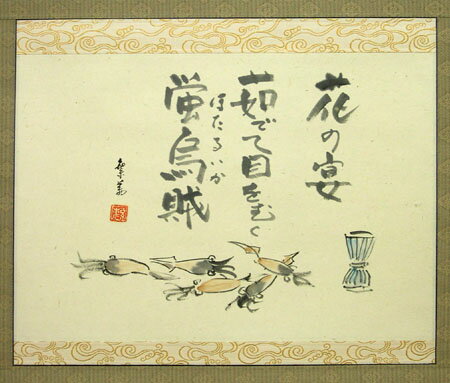 花の宴
茹でて目をむく
蛍烏賊
ほたるいか